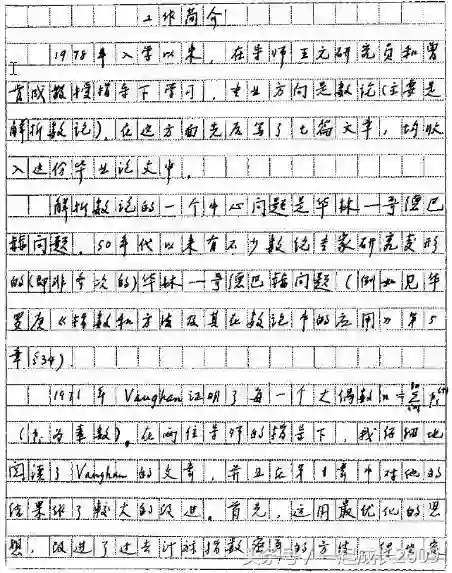 工作简介
1978年入学以来，在导师王元研究员和曾
肯成教授指导下学习，专业方向是数论(主要是
解析数论)。在这方面先后写了七篇文章，均收
入这份毕业论文中。
解析数论的一个中心问题是华林一哥德巴
赫问题。50年代以来有不少数论专家研究变形
的(即非齐次的)华林一哥德巴赫问题(例如见华
罗庚《指数和方法及其在数论中的应用》第5
章§34)。
1971年Vaughan证明了每一个大偶数n=
(为素数)。在两位导师的指导下，我仔细地
阅读了Vaughan的文章，并且在第1章中对他的
结果作了较大的改进。首先，运用最优化的思
想，改进了过去计算指数密率的方法，